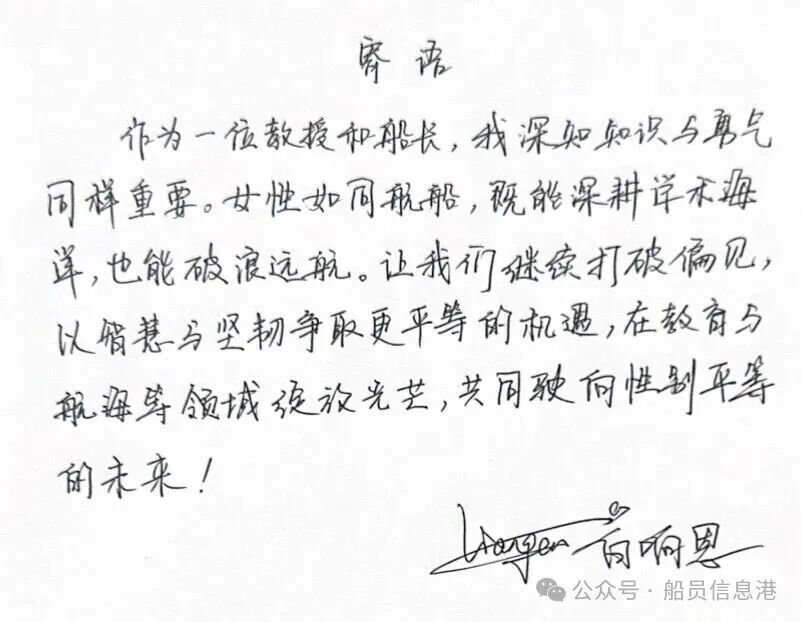 寄语
作为一位教授和船长，我深知知识与勇气
同样重要。女性如同航船，既能深耕学术海
洋，也能破浪远航。让我们继续打破偏见，
以智慧与坚韧争取更平等的机遇，在教育与
航海等领域绽放光芒，共同驶向性别平等
的未来！
白响恩
公众号·船员信息港